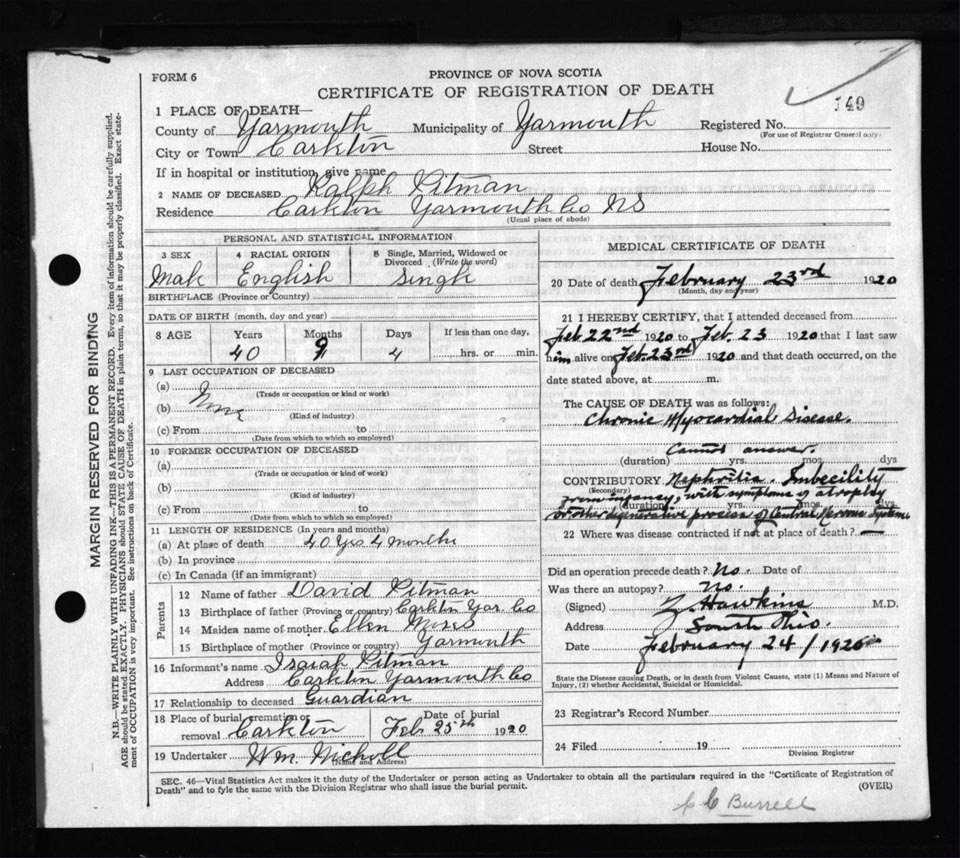 FORM 6
PROVINCE OF NOVA SCOTIA
CERTIFICATE OF REGISTRATION OF DEATH
149
1 PLACE OF DEATH—
County of Yarmouth Municipality of Yarmouth Registered No.
(For use of Registrar General only)
City or Town Carleton Street House No.
If in hospital or institution, give name
2 NAME OF DECEASED Ralph Pitman
Residence Carleton Yarmouth Co NS
(Usual place of abode)
PERSONAL AND STATISTICAL INFORMATION
3 SEX
Male
4 RACIAL ORIGIN
English
5 Single, Married, Widowed or
Divorced (Write the word)
Single
BIRTHPLACE (Province or Country)
DATE OF BIRTH (month, day and year)
8 AGE Years Months Days If less than one day,
40 9 4 hrs. or min.
9 LAST OCCUPATION OF DECEASED
(a)
(Trade or occupation or kind or work)
None
(b)
(Kind of industry)
(c) From to
(Date from which to which so employed)
10 FORMER OCCUPATION OF DECEASED
(a)
(Trade or occupation or kind of work)
(b)
(Kind of industry)
(c) From to
(Date from which to which so employed)
11 LENGTH OF RESIDENCE (In years and months)
(a) At place of death 40 Yrs 4 months
(b) In province
(c) In Canada (if an immigrant)
Parents
12 Name of father David Pitman
13 Birthplace of father (Province or country) Carleton Yar Co
14 Maiden name of mother Ellen Moses
15 Birthplace of mother (Province or country) Yarmouth
16 Informant's name Isaiah Pitman
Address Carleton Yarmouth Co
17 Relationship to deceased Guardian
18 Place of burial, cremation or
removal Carleton
Date of burial
Feb 25th 1920
19 Undertaker Wm. Nicholl
(Name and Address)
MEDICAL CERTIFICATE OF DEATH
20 Date of death February 23rd 1920
(Month, day and year)
21 I HEREBY CERTIFY, that I attended deceased from
Feb 22nd 1920 to Feb. 23 1920 that I last saw
him alive on Feb. 23rd 1920 and that death occurred, on the
date stated above, at m.
The CAUSE OF DEATH was as follows:
Chronic Myocardial Disease.
Cannot answer.
(duration) yrs. mos. dys
CONTRIBUTORY Nephritis. Imbecility
(Secondary)
from infancy, with symptoms of atrophy
(duration) yrs. mos. dys
or other degenerative process of Central Nervous System
22 Where was disease contracted if not at place of death? —
Did an operation precede death? No. Date of
Was there an autopsy? No.
(Signed) Z. Hawkins M.D.
Address South Ohio.
Date February 24/1920
State the Disease causing Death, or in Death from Violent Causes, state (1) Means and Nature of
Injury, (2) whether Accidental, Suicidal or Homicidal.
23 Registrar's Record Number
24 Filed 19
Division Registrar
SEC. 46—Vital Statistics Act makes it the duty of the Undertaker or person acting as Undertaker to obtain all the particulars required in the "Certificate of Registration of
Death" and to fyle the same with the Division Registrar who shall issue the burial permit. (OVER)
C C Burrell
MARGIN RESERVED FOR BINDING
N.B.—WRITE PLAINLY WITH UNFADING INK—THIS IS A PERMANENT RECORD. Every item of information should be carefully supplied.
AGE should be stated EXACTLY. PHYSICIANS should STATE CAUSE OF DEATH in plain terms, so that it may be properly classified. Exact state-
ment of OCCUPATION is very important. See instructions on back of Certificate.